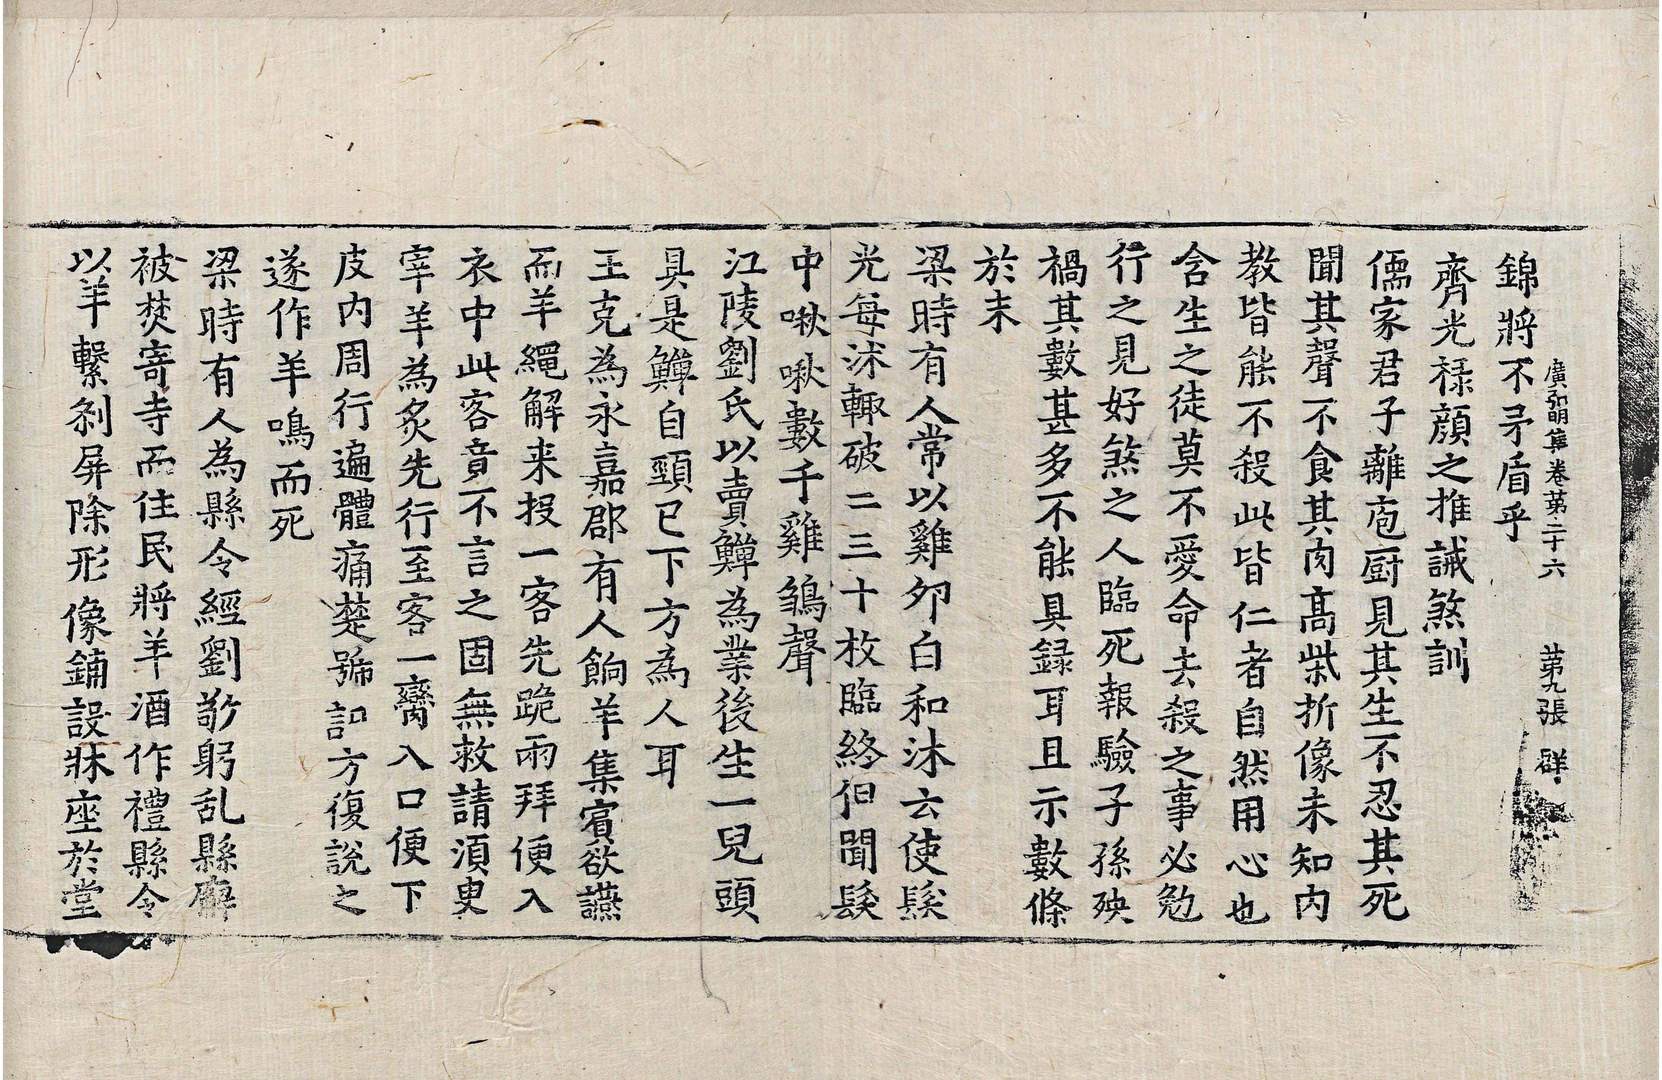 錦將不矛盾乎
廣弘明集卷苐二十六 苐九張 群
齊光祿顔之推誡煞訓
儒家君子離庖厨見其生不忍其死
聞其聲不食其肉髙柴折像未知内
教皆能不殺此皆仁者自然用心也
含生之徒莫不愛命去殺之事必勉
行之見好煞之人臨死報驗子孫殃
禍其數甚多不能具録耳且示數條
於末
梁時有人常以雞夘白和沐云使髮
光每沐輙破二三十枚臨終但聞髮
中啾啾數千雞鶵聲
江陵劉氏以賣䱇為業後生一兒頭
具是䱇自頸已下方為人耳
王克為永嘉郡有人餉羊集賔欲讌
而羊䋲解来投一客先跪兩拜便入
衣中此客竟不言之固無救請湏臾
宰羊為炙先行至客一臠入口便下
皮内周行遍體痛楚號訆方復說之
遂作羊鳴而死
梁時有人為縣令經劉敬躬乱縣廨
被焚寄寺而住民將羊酒作禮縣令
以羊繫刹屏除形像鋪設牀座於堂